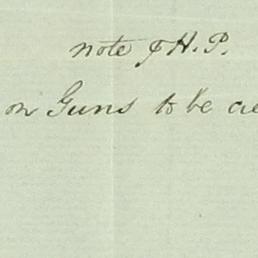 note of H.P.
on Guns to be